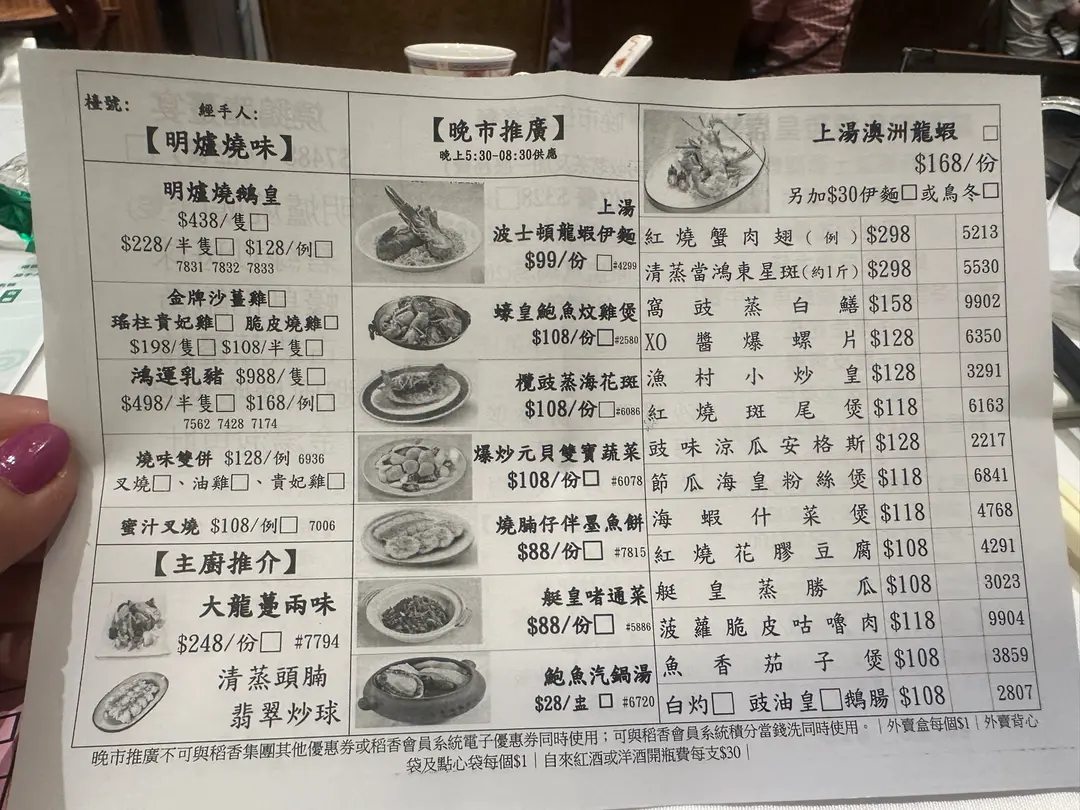 檯號:
經手人:
【明爐燒味】
明爐燒鵝皇
$438/隻□
$228/半隻□ $128/例□
7831 7832 7833
金牌沙薑雞□
瑤柱貴妃雞□ 脆皮燒雞□
$198/隻□ $108/半隻□
鴻運乳豬 $988/隻□
$498/半隻□ $168/例□
7562 7428 7174
燒味雙併 $128/例 6936
叉燒□、油雞□、貴妃雞□
蜜汁叉燒 $108/例□ 7006
【主廚推介】
大龍躉兩味
$248/份□ #7794
清蒸頭腩
翡翠炒球
【晚市推廣】
晚上5:30-08:30供應
上湯
波士頓龍蝦伊麵
$99/份 □#4299
蠔皇鮑魚炆雞煲
$108/份□#2580
欖豉蒸海花斑
$108/份□#6086
爆炒元貝雙寶蔬菜
$108/份□ #6078
燒腩仔伴墨魚餅
$88/份□ #7815
艇皇啫通菜
$88/份□ #5886
鮑魚汽鍋湯
$28/盅 □ #6720
上湯澳洲龍蝦 □
$168/份
另加$30伊麵□或烏冬□
紅燒蟹肉翅(例) $298 5213
清蒸當鴻東星斑(約1斤) $298 5530
窩豉蒸白鱔 $158 9902
XO醬爆螺片 $128 6350
漁村小炒皇 $128 3291
紅燒斑尾煲 $118 6163
豉味涼瓜安格斯 $128 2217
節瓜海皇粉絲煲 $118 6841
海蝦什菜煲 $118 4768
紅燒花膠豆腐 $108 4291
艇皇蒸勝瓜 $108 3023
菠蘿脆皮咕嚕肉 $118 9904
魚香茄子煲 $108 3859
白灼□ 豉油皇□鵝腸 $108 2807
晚市推廣不可與稻香集團其他優惠券或稻香會員系統電子優惠券同時使用；可與稻香會員系統積分當錢洗同時使用。|外賣盒每個$1|外賣背心
袋及點心袋每個$1|自來紅酒或洋酒開瓶費每支$30|